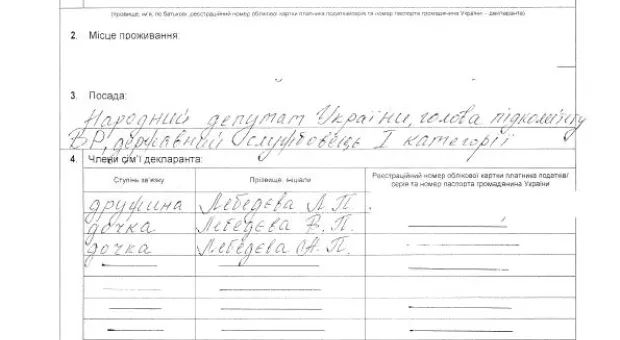 (прізвище, ім'я, по батькові, реєстраційний номер облікової картки платника податків/серія та номер паспорта громадянина України - декларанта)
2. Місце проживання:
3. Посада:
Народний депутат України, голова підкомітету
ВР, державний службовець I категорії
4. Члени сім'ї декларанта:
Ступінь зв'язку Прізвище, ініціали Реєстраційний номер облікової картки платника податків/
серія та номер паспорта громадянина України
дружина Лебедєва Л. П.
дочка Лебедєва В. П.
дочка Лебедєва А. П.